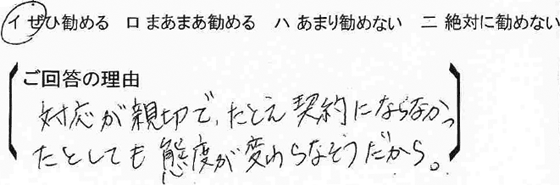 イ ぜひ勧める ロ まあまあ勧める ハ あまり勧めない ニ 絶対に勧めない
ご回答の理由
対応が親切で、たとえ契約にならなかっ
たとしても態度が変わらなそうだから。